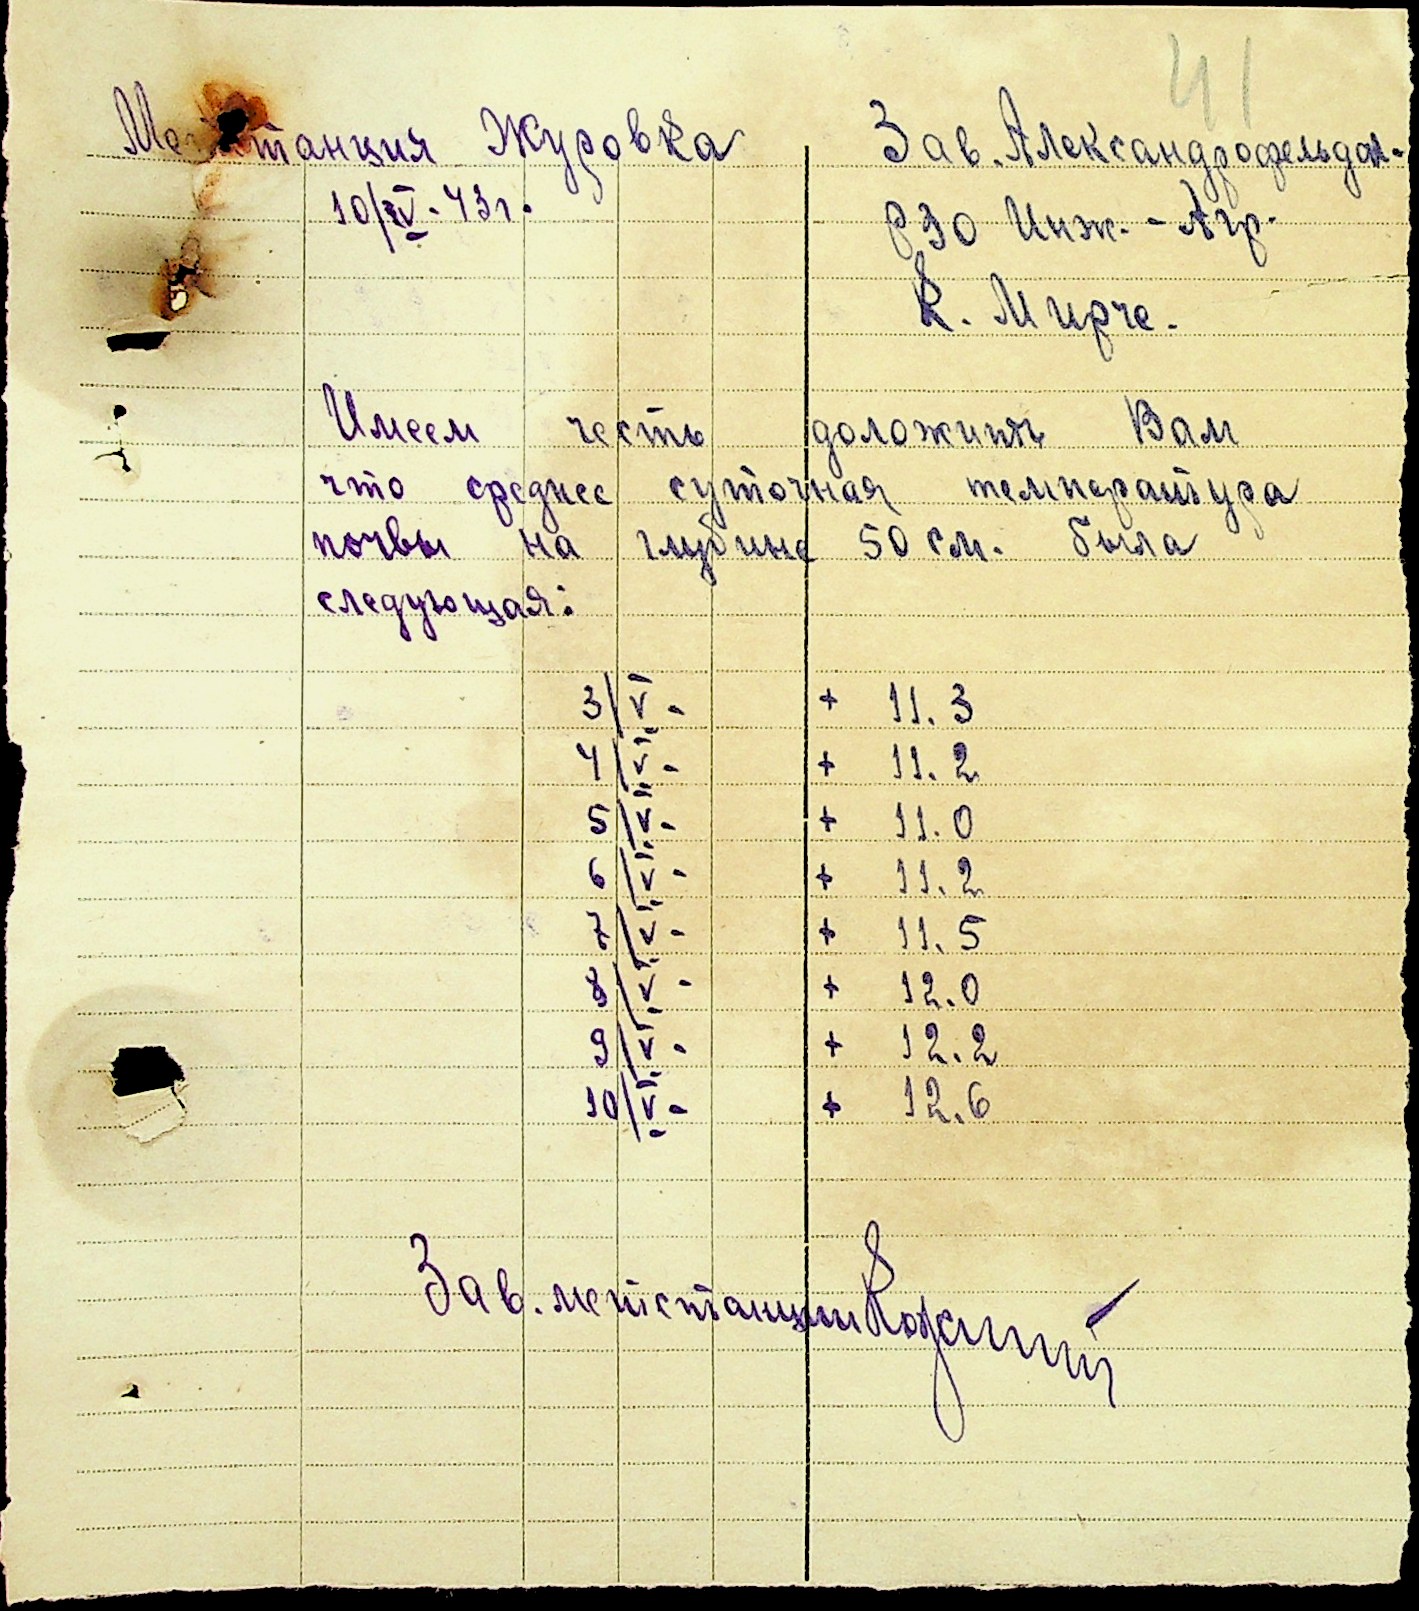 41
Метстанция Журовка
10/IV. 43г.
Зав. Александрофельдск.
РЗО Инж. - Агр.
К. Мирче.
Имеем честь доложить Вам
что среднее суточная температура
почвы на глубине 50 см. была
следующая:
3/V. + 11.3
4/V. + 11.2
5/V. + 11.0
6/V. + 11.2
7/V. + 11.5
8/V. + 12.0
9/V. + 12.2
10/V. + 12.6
Зав. метстанции